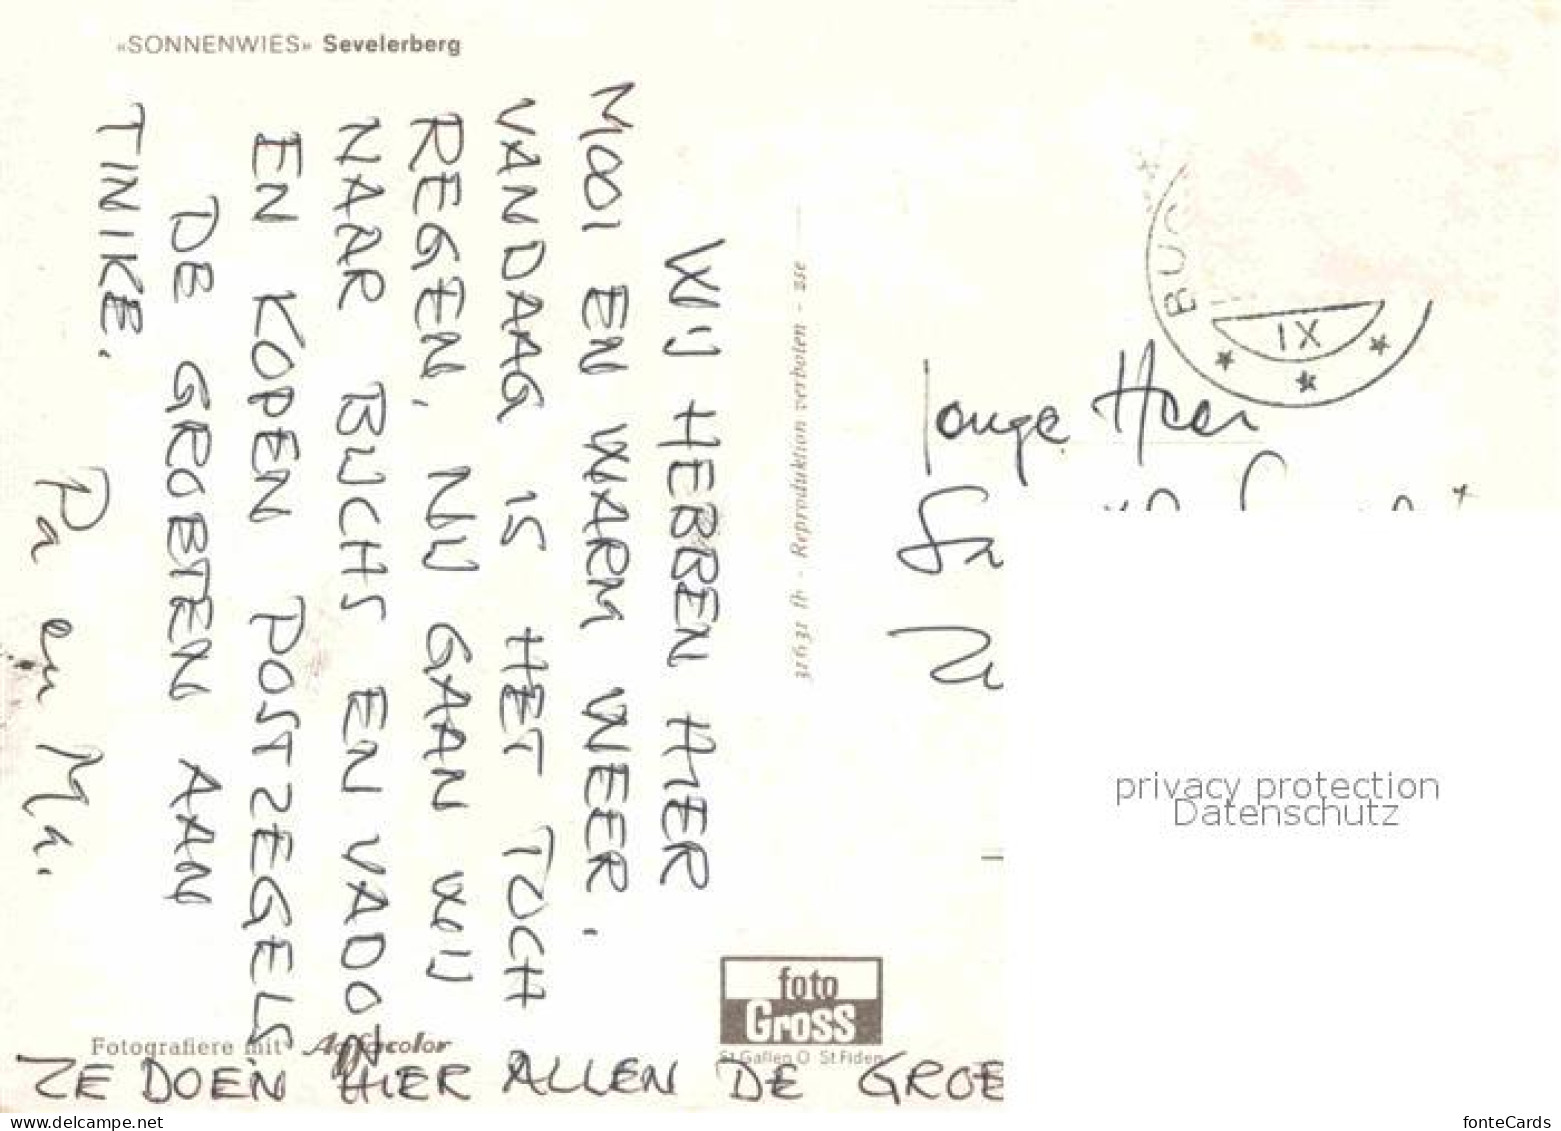 «SONNENWIES» Sevelerberg
WIJ HEBBEN HIER
MOOI EN WARM WEER.
VANDAAG IS HET TOCH
REGEN, NU GAAN WIJ
NAAR BUCHS EN VADOZ
EN KOPEN POSTZEGELS
DE GROETEN AAN
TINIKE.
Pa en Ma.
ZE DOEN HIER ALLEN DE GROE
Fotografiere mit Agfacolor
31631 fh - Reproduktion verboten - sse
foto
Gross
St Gallen O St Fiden
BUC
IX
Jonge Heer
privacy protection
Datenschutz
www.delcampe.net
fonteCards